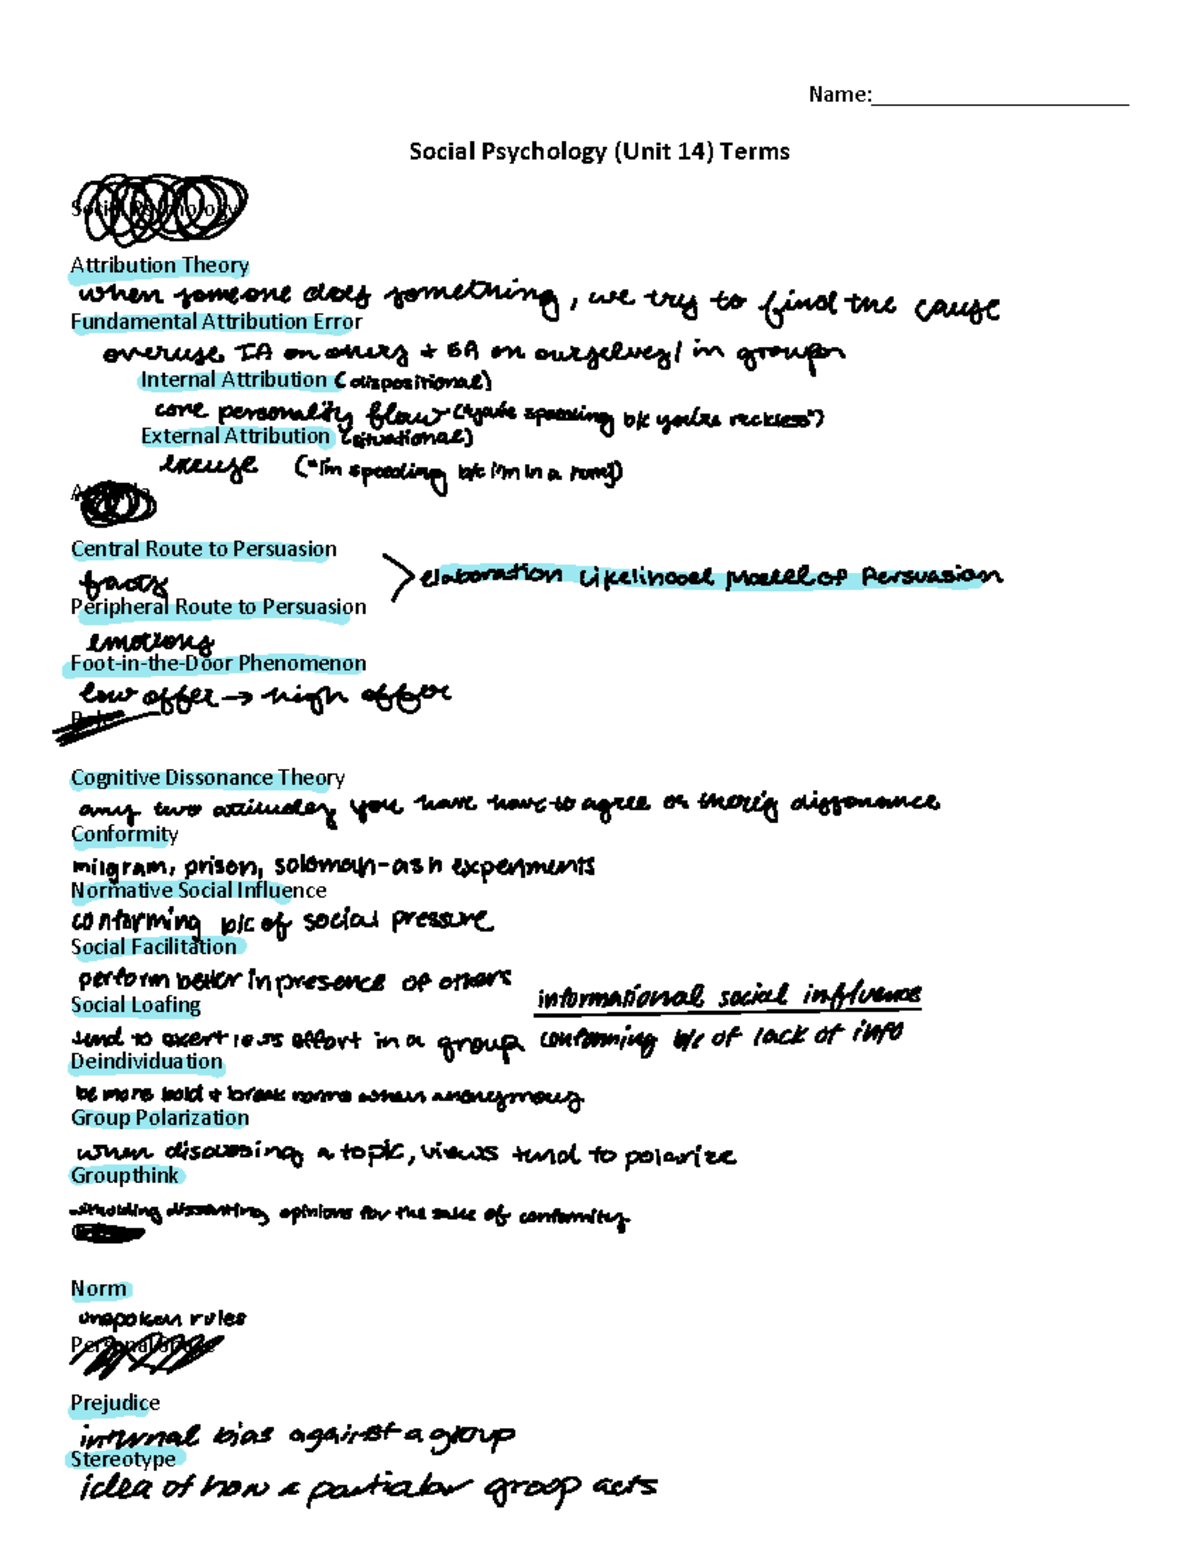 Name:
Social Psychology (Unit 14) Terms
Social Psychology
Attribution Theory
when someone does something, we try to find the cause
Fundamental Attribution Error
overuse IA on others + EA on ourselves/ in groups
Internal Attribution (dispositional)
core personality flaw ("you're speeding b/c you're reckless")
External Attribution (situational)
excuse ("I'm speeding b/c I'm in a rush")
Central Route to Persuasion
facts
> elaboration Likelihood Model of Persuasion
Peripheral Route to Persuasion
emotions
Foot-in-the-Door Phenomenon
low offer → high offer
Cognitive Dissonance Theory
any two attitudes you have have to agree or there's dissonance
Conformity
milgram, prison, soloman-ash experiments
Normative Social Influence
conforming b/c of social pressure
Social Facilitation
perform better in presence of others
Social Loafing
informational social influence
tend to exert less effort in a group
conforming b/c of lack of info
Deindividuation
be more bold + break norms when anonymous
Group Polarization
when discussing a topic, views tend to polarize
Groupthink
dissenting opinions for the sake of conformity
Norm
unspoken rules
Personal Space
Prejudice
internal bias against a group
Stereotype
idea of how a particular group acts